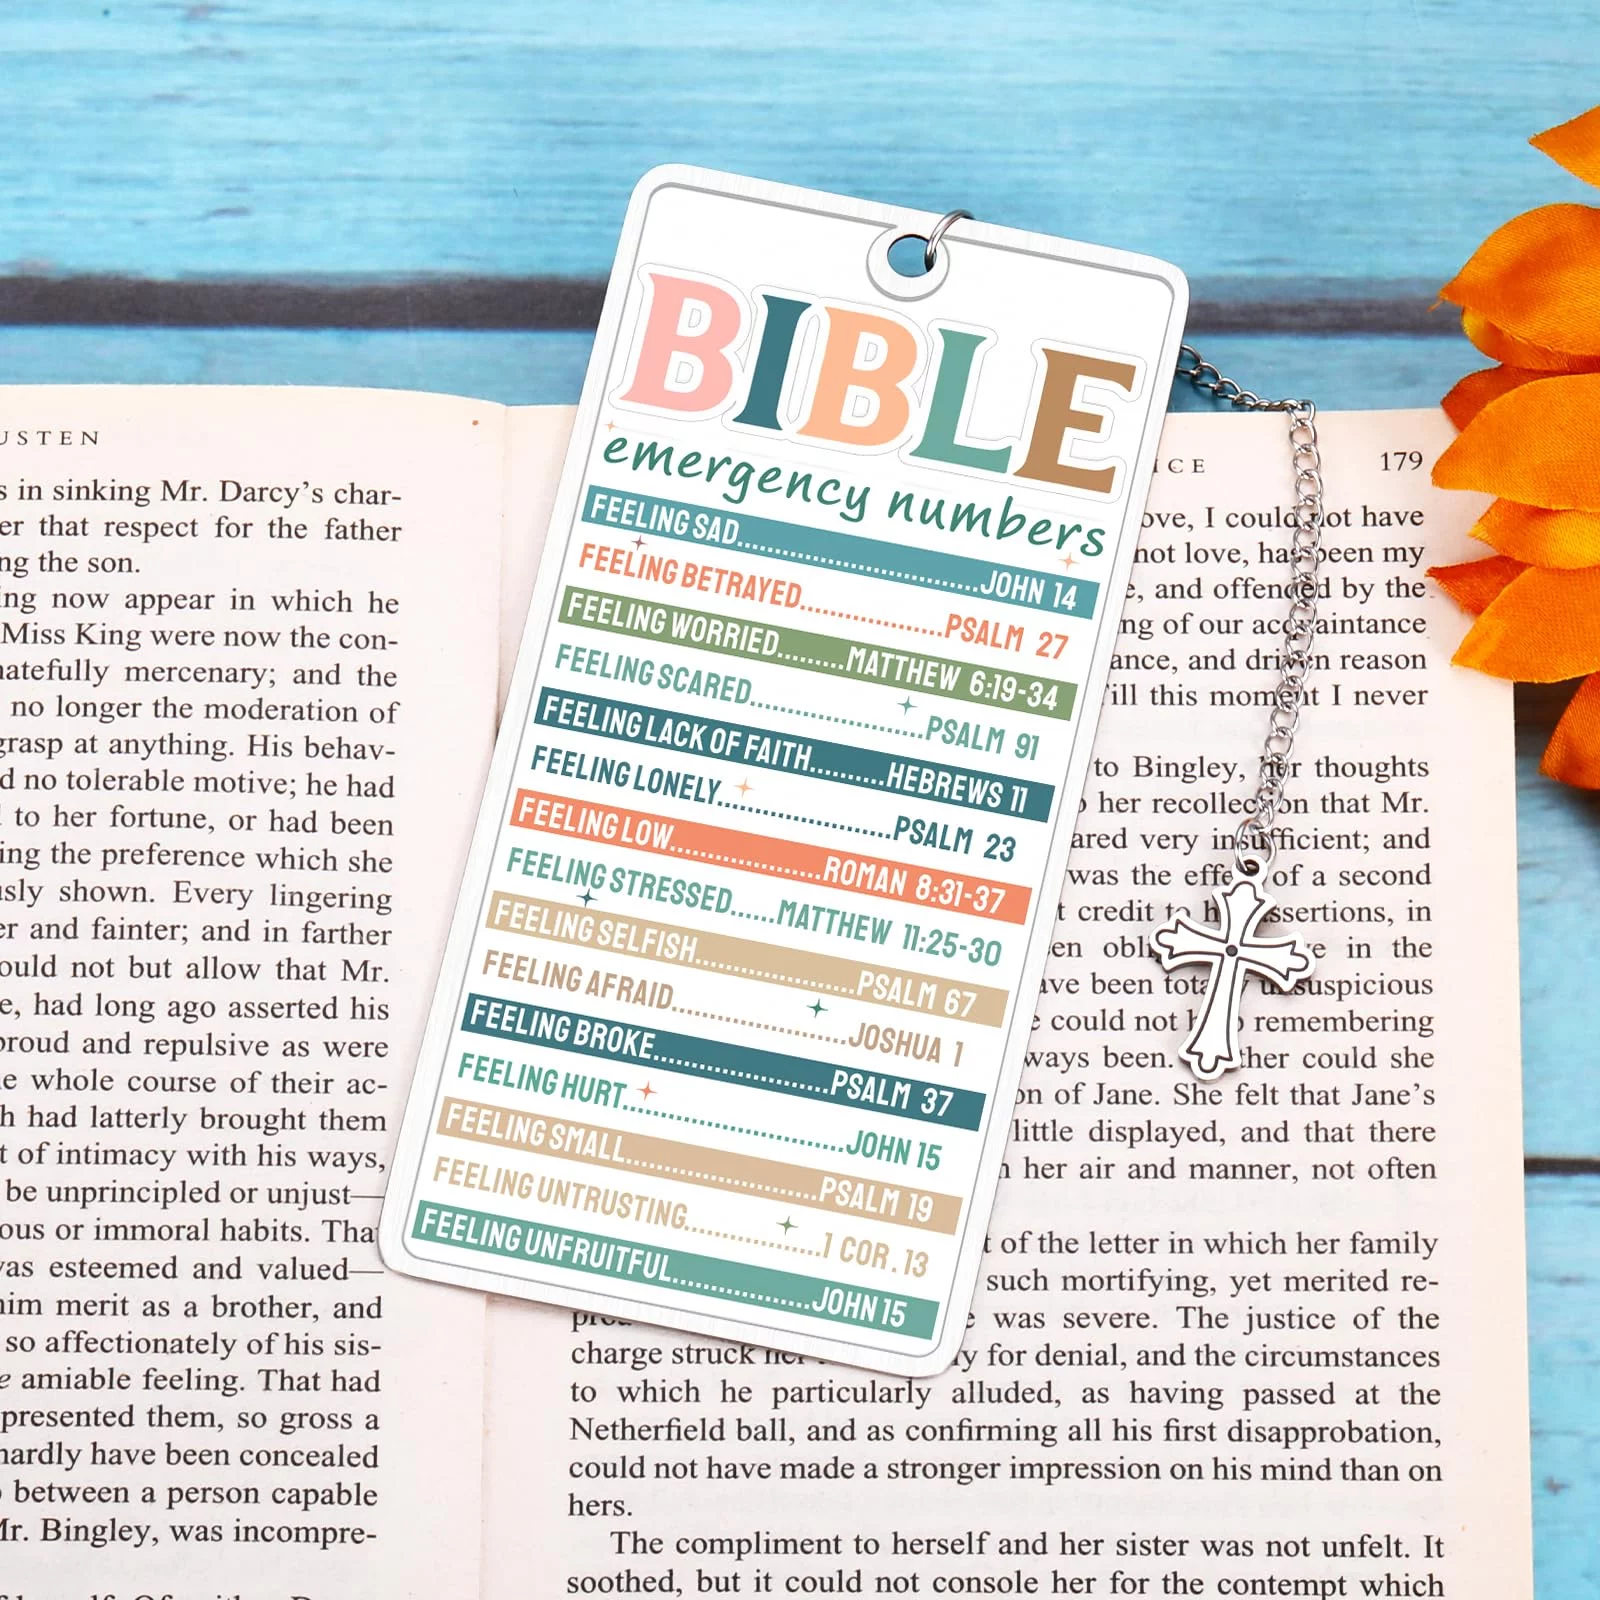 BIBLE
emergency numbers
FEELING SAD..............................JOHN 14
FEELING BETRAYED..................PSALM 27
FEELING WORRIED.........MATTHEW 6:19-34
FEELING SCARED......................PSALM 91
FEELING LACK OF FAITH..........HEBREWS 11
FEELING LONELY......................PSALM 23
FEELING LOW....................ROMAN 8:31-37
FEELING STRESSED......MATTHEW 11:25-30
FEELING SELFISH....................PSALM 67
FEELING AFRAID......................JOSHUA 1
FEELING BROKE......................PSALM 37
FEELING HURT............................JOHN 15
FEELING SMALL........................PSALM 19
FEELING UNTRUSTING.................1 COR. 13
FEELING UNFRUITFUL.................JOHN 15
in sinking Mr. Darcy's char-
that respect for the father
the son.
now appear in which he
Miss King were now the con-
mercenary; and the
no longer the moderation of
grasp at anything. His behav-
no tolerable motive; he had
to her fortune, or had been
the preference which she
shown. Every lingering
and fainter; and in farther
but allow that Mr.
had long ago asserted his
proud and repulsive as were
whole course of their ac-
had latterly brought them
of intimacy with his ways,
be unprincipled or unjust—
or immoral habits. That
was esteemed and valued—
him merit as a brother, and
so affectionately of his sis-
amiable feeling. That had
presented them, so gross a
hardly have been concealed
between a person capable
Mr. Bingley, was incompre-
179
love, I could not have
not love, has been my
and offended by the
of our acquaintance
and driven reason
Till this moment I never
to Bingley, her thoughts
her recollection that Mr.
very insufficient; and
was the effect of a second
credit to her assertions, in
in the
have been totally unsuspicious
could not help remembering
always been. Neither could she
of Jane. She felt that Jane's
little displayed, and that there
her air and manner, not often
of the letter in which her family
such mortifying, yet merited re-
was severe. The justice of the
charge struck her for denial, and the circumstances
to which he particularly alluded, as having passed at the
Netherfield ball, and as confirming all his first disapprobation,
could not have made a stronger impression on his mind than on
hers.
The compliment to herself and her sister was not unfelt. It
soothed, but it could not console her for the contempt which